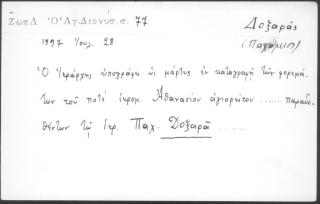 Ζωπλ Ὁ Ἁγ. Διονύσ. σ. 77
Δοξαρᾶς
(Παχώμιος)
1997 Ἰουλ. 28
Ὁ Ἱεράρχης ὑπογράφει ὡς μάρτυς ἐν καταγραφῇ τῶν φορεμά-
των τοῦ ποτέ ἱερομ. Ἀθανασίου ἁγιορείτου ........ παραδο-
θέντων τῷ Ἱερ. Παχ. Δοξαρᾶ ........